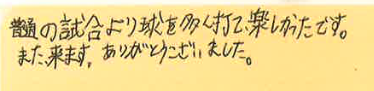 普通の試合より球を多く打て楽しかったです。
また、来ます。ありがとうございました。